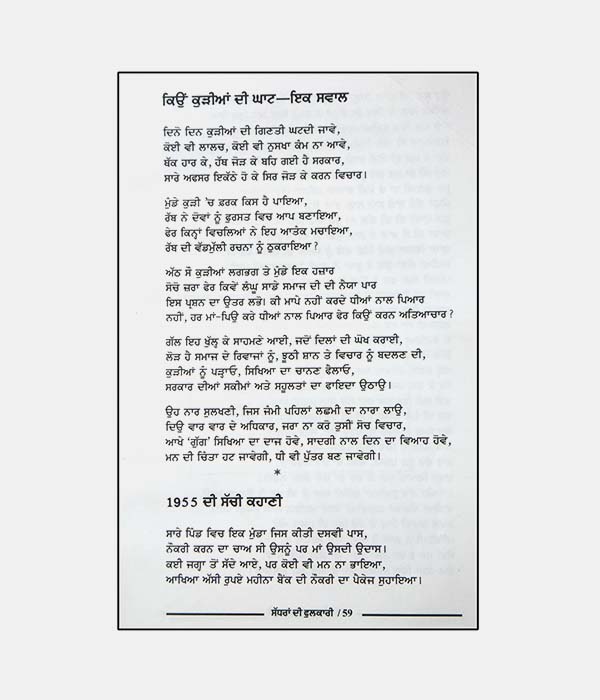 ਕਿਉਂ ਕੁੜੀਆਂ ਦੀ ਘਾਟ—ਇਕ ਸਵਾਲ
ਦਿਨੋ ਦਿਨ ਕੁੜੀਆਂ ਦੀ ਗਿਣਤੀ ਘਟਦੀ ਜਾਵੇ,
ਕੋਈ ਵੀ ਲਾਲਚ, ਕੋਈ ਵੀ ਨੁਸਖਾ ਕੰਮ ਨਾ ਆਵੇ,
ਥੱਕ ਹਾਰ ਕੇ, ਹੱਥ ਜੋੜ ਕੇ ਬਹਿ ਗਈ ਹੈ ਸਰਕਾਰ,
ਸਾਰੇ ਅਫਸਰ ਇਕੱਠੇ ਹੋ ਕੇ ਸਿਰ ਜੋੜ ਕੇ ਕਰਨ ਵਿਚਾਰ।
ਮੁੰਡੇ ਕੁੜੀ 'ਚ ਫ਼ਰਕ ਕਿਸ ਹੈ ਪਾਇਆ,
ਰੱਬ ਨੇ ਦੋਵਾਂ ਨੂੰ ਫੁਰਸਤ ਵਿਚ ਆਪ ਬਣਾਇਆ,
ਫੇਰ ਕਿਨ੍ਹਾਂ ਵਿਚਲਿਆਂ ਨੇ ਇਹ ਆਤੰਕ ਮਚਾਇਆ,
ਰੱਬ ਦੀ ਵੱਡਮੁੱਲੀ ਰਚਨਾ ਨੂੰ ਠੁਕਰਾਇਆ ?
ਅੱਠ ਸੌ ਕੁੜੀਆਂ ਲਗਭਗ ਤੇ ਮੁੰਡੇ ਇਕ ਹਜ਼ਾਰ
ਸੋਚੋ ਜ਼ਰਾ ਫੇਰ ਕਿਵੇਂ ਲੰਘੂ ਸਾਡੇ ਸਮਾਜ ਦੀ ਦੀ ਨੈਯਾ ਪਾਰ
ਇਸ ਪ੍ਰਸ਼ਨ ਦਾ ਉਤਰ ਲਭੋ। ਕੀ ਮਾਪੇ ਨਹੀਂ ਕਰਦੇ ਧੀਆਂ ਨਾਲ ਪਿਆਰ
ਨਹੀਂ, ਹਰ ਮਾਂ-ਪਿਉ ਕਰੇ ਧੀਆਂ ਨਾਲ ਪਿਆਰ ਫੇਰ ਕਿਉਂ ਕਰਨ ਅਤਿਆਚਾਰ ?
ਗੱਲ ਇਹ ਖੁੱਲ੍ਹ ਕੇ ਸਾਹਮਣੇ ਆਈ, ਜਦੋਂ ਦਿਲਾਂ ਦੀ ਘੋਖ ਕਰਾਈ,
ਲੋੜ ਹੈ ਸਮਾਜ ਦੇ ਰਿਵਾਜਾਂ ਨੂੰ, ਝੂਠੀ ਸ਼ਾਨ ਤੇ ਵਿਚਾਰ ਨੂੰ ਬਦਲਣ ਦੀ,
ਕੁੜੀਆਂ ਨੂੰ ਪੜ੍ਹਾਓ, ਸਿਖਿਆ ਦਾ ਚਾਨਣ ਫੈਲਾਓ,
ਸਰਕਾਰ ਦੀਆਂ ਸਕੀਮਾਂ ਅਤੇ ਸਹੂਲਤਾਂ ਦਾ ਫਾਇਦਾ ਉਠਾਉ।
ਉਹ ਨਾਰ ਸੁਲਖਣੀ, ਜਿਸ ਜੰਮੀ ਪਹਿਲਾਂ ਲਛਮੀ ਦਾ ਨਾਰਾ ਲਾਉ,
ਦਿਉ ਵਾਰ ਵਾਰ ਦੇ ਅਧਿਕਾਰ, ਜਰਾ ਨਾ ਕਰੋ ਤੁਸੀਂ ਸੋਚ ਵਿਚਾਰ,
ਆਖੇ 'ਗੁੱਗ' ਸਿਖਿਆ ਦਾ ਦਾਜ ਹੋਵੇ, ਸਾਦਗੀ ਨਾਲ ਦਿਨ ਦਾ ਵਿਆਹ ਹੋਵੇ,
ਮਨ ਦੀ ਚਿੰਤਾ ਹਟ ਜਾਵੇਗੀ, ਧੀ ਵੀ ਪੁੱਤਰ ਬਣ ਜਾਵੇਗੀ।
*
1955 ਦੀ ਸੱਚੀ ਕਹਾਣੀ
ਸਾਰੇ ਪਿੰਡ ਵਿਚ ਇਕ ਮੁੰਡਾ ਜਿਸ ਕੀਤੀ ਦਸਵੀਂ ਪਾਸ,
ਨੌਕਰੀ ਕਰਨ ਦਾ ਚਾਅ ਸੀ ਉਸਨੂੰ ਪਰ ਮਾਂ ਉਸਦੀ ਉਦਾਸ।
ਕਈ ਜਗ੍ਹਾ ਤੋਂ ਸੱਦੇ ਆਏ, ਪਰ ਕੋਈ ਵੀ ਮਨ ਨਾ ਭਾਇਆ,
ਆਖਿਆ ਅੱਸੀ ਰੁਪਏ ਮਹੀਨਾ ਬੈਂਕ ਦੀ ਨੌਕਰੀ ਦਾ ਪੈਕੇਜ ਸੁਹਾਇਆ।
ਸੱਧਰਾਂ ਦੀ ਫੁਲਕਾਰੀ / 59